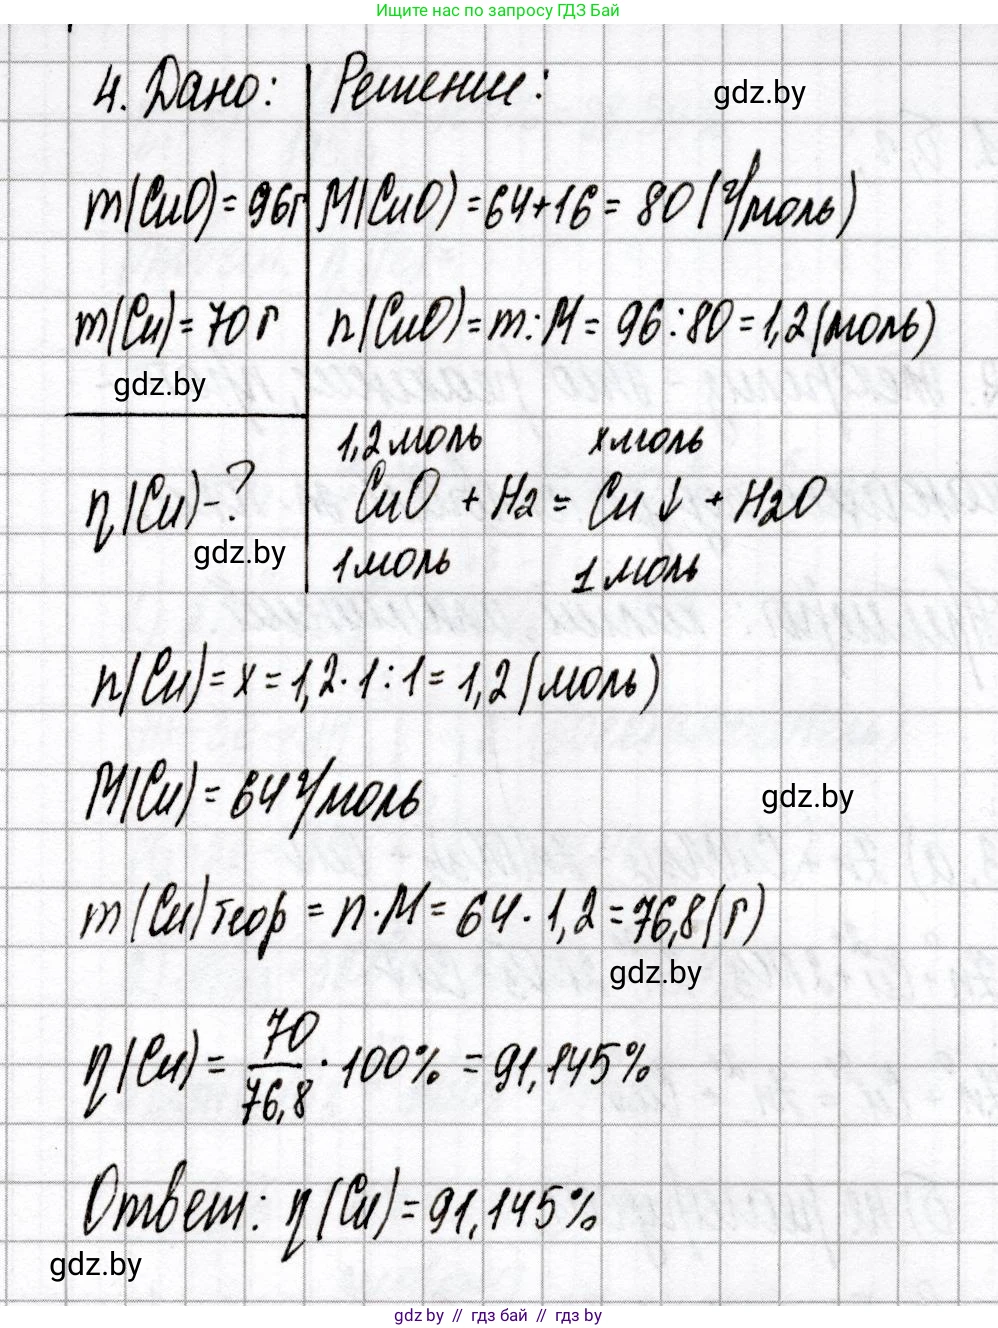 Ищите нас по запросу ГДЗ Бай
4. Дано: Решение:
gdz.by
m(CuO) = 96г M(CuO) = 64+16 = 80 (г/моль)
m(Cu) = 70 г n(CuO) = m:M = 96:80 = 1,2 (моль)
gdz.by
1,2 моль x моль
η(Cu) - ? CuO + H2 = Cu↓ + H2O
gdz.by
1 моль 1 моль
n(Cu) = x = 1,2·1:1 = 1,2 (моль)
M(Cu) = 64 г/моль
gdz.by
m(Cu) теор = n·M = 64·1,2 = 76,8 (г)
gdz.by
η(Cu) = 70/76,8 · 100% = 91,145%
Ответ: η(Cu) = 91,145%
gdz.by
gdz.by // гдз бай // gdz.by